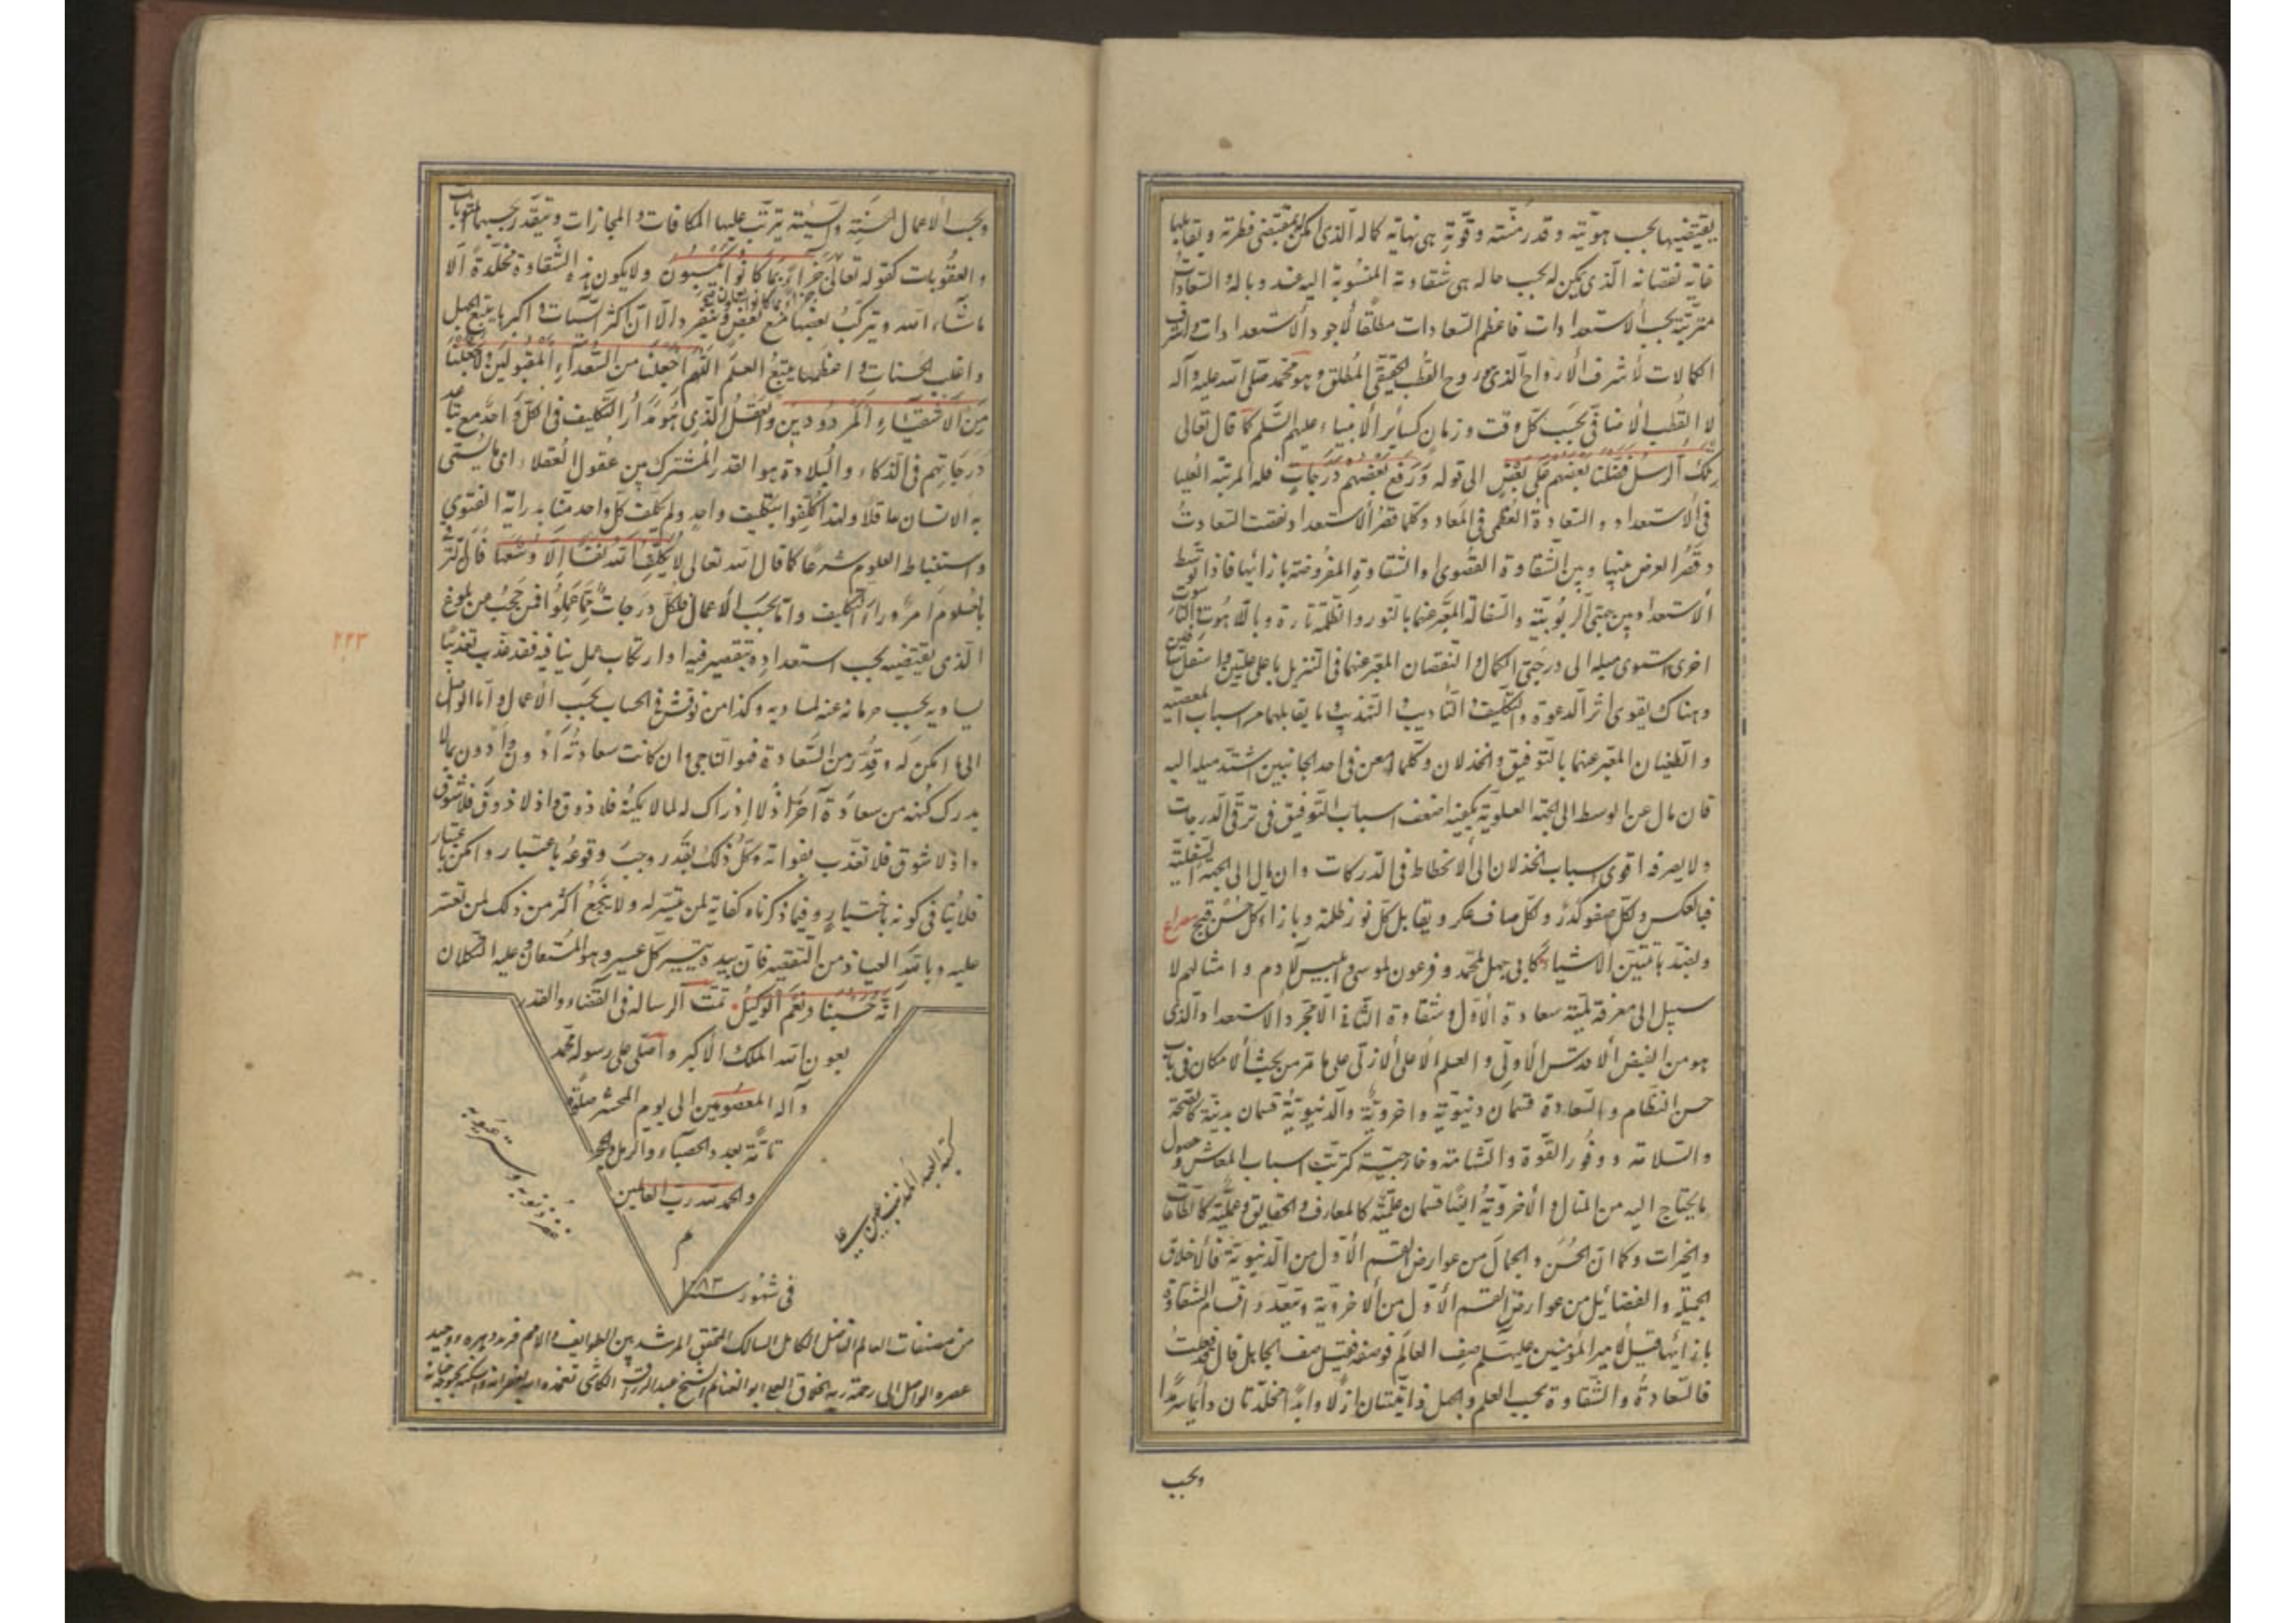 يقتضيها بحسب هويته وقدر منته وقوته هى نهاية كماله الذى امكن بمقتضى فطرته ويقابلها
غاية نقصانه الذى يمكن له بحسب حاله هى شقاوته المنسوبة اليه عند وباله والسعادات
مترتبة بحسب الاستعدادات فاعظم السعادات مطلقا لاجود الاستعدادات واشرف
الكمالات لاشرف الارواح الذى هو روح القطب الحقيقى المطلق وهو محمد صلى الله عليه وآله
لا القطب الاضافى بحسب كل وقت وزمان كسائر الانبياء عليهم السلم كما قال تعالى
تلك الرسل فضلنا بعضهم على بعض الى قوله ورفع بعضهم درجات فله المرتبة العليا
فى الاستعداد والسعادة العظمى فى المعاد وكلما قصر الاستعداد نقصت السعادة
وقصر العرض بينها وبين الشقاوة القصوى او الشقاوة المفروضة بازائها فاذا توسط
الاستعداد بين جهتى الربوبية والسفالة المعبر عنهما بالنور والظلمة تارة وباللاهوت والناسوت
اخرى استوى ميله الى درجتى الكمال والنقصان المعبر عنهما فى التنزيل باعلى عليين واسفل سافلين
وهناك يقوى اثر الدعوة والتكليف والتاديب والتهذيب وما يقابلهما من اسباب المعصية
والطغيان المعبر عنهما بالتوفيق والخذلان وكلما امعن فى احد الجانبين اشتد ميله اليه
فان مال عن الوسط الى الجهة العلوية يكفيه اضعف اسباب التوفيق فى ترقى الدرجات
ولا يصرفه اقوى اسباب الخذلان الى الانحطاط فى الدركات وان مال الى الجهة السفلية
فبالعكس ولكل صفو كدر ولكل صاف عكر ويقابل كل نور ظلمة وبازاء كل حسن قبيح مصراع
وبضدها تتبين الاشياء كابى جهل لمحمد وفرعون لموسى وابليس لآدم وامثالهم لا
سبيل الى معرفة لمية سعادة الاول وشقاوة الثانى الا مجرد الاستعداد الذى
هو من الفيض الاقدس الاولى والعلم الاعلى الازلى على ما مر من بحث الامكان فى باب
حسن النظام والسعادة قسمان دنيوية واخروية والدنيوية قسمان بدنية كالصحة
والسلامة ووفور القوة والشهامة وخارجية كترتب اسباب المعاش وحصول
ما يحتاج اليه من المال والاخروية ايضا قسمان علمية كالمعارف والحقايق وعملية كالطاعات
والخيرات وكما ان الحسن والجمال من عوارض القسم الاول من الدنيوية فالاخلاق
الجميلة والفضائل من عوارض القسم الاول من الاخروية وتتعدد اقسام الشقاوة
بازائها قيل لامير المؤمنين عليه السلم صف العالم فوصفه فقيل صف الجاهل قال قد فعلت
فالسعادة والشقاوة بحسب العلم والجهل ذاتيتان ازلا وابدا مخلدتان دائما سرمدا
وبحسب
وبحسب الاعمال الحسنة والسيئة يترتب عليها المكافات والمجازات ويتقدر بحسبهما المثوبات
والعقوبات كقوله تعالى جزاء بما كانوا يكسبون ولا يكون هذه الشقاوة مخلدة الا
جزاء بما كانوا يعملون
ما شاء الله ويتركب بعضها مع بعض وينفرد الا ان اكثر السيئات واكبرها يتبع الجهل
واغلب الحسنات واعظمها يتبع العلم اللهم اجعلنا من السعداء المقبولين ولا تجعلنا
من الاشقياء المردودين والعقل الذى هو مدار التكليف فى الكل واحد مع تباعد
درجاتهم فى الذكاء والبلادة هو القدر المشترك بين عقول العقلاء اى ما يسمى
به الانسان عاقلا ولهذا كلفوا بتكليف واحد ولم يكلف كل واحد منا بدراية الفتوى
واستنباط العلوم شرعا كما قال الله تعالى لا يكلف الله نفسا الا وسعها فان الترقى
بالعلوم امر وراء التكليف واما بحسب الاعمال فلكل درجات مما عملوا فمن حجب من بلوغ
الذى يقتضيه بحسب استعداده بتقصير فيه او ارتكاب عمل ينافيه فقد عذب تعذيبا
يساويه بحسب حرمانه عنه لمساويه وكذا من نوقش فى الحساب بحسب الاعمال واما الواصل
الى ما امكن له وقدر من السعادة فهو الناجى وان كانت سعادته ادون وادون بما لا
يدرك كنهه من سعادة آخر اذ لا ادراك له لما لا يمكنه فلا ذوق واذ لا ذوق فلا شوق
واذ لا شوق فلا تعذب بفواته وكل ذلك بقدر وجب وقوعه باعتبار وامكن باعتبار
فلا ينافى كونه باختيار وفيما ذكرناه كفاية لمن تيسر له ولا ينجع اكثر من ذلك لمن تعسر
عليه وبالله العياذ من التعقيد فان بيده تيسير كل عسير وهو المستعان وعليه التكلان
انه حسبنا ونعم الوكيل تمت الرسالة فى القضاء والقدر
بعون الله الملك الاكبر واصلى على رسوله محمد
وآله المعصومين الى يوم المحشر صلوة
تامة بعدد الحصباء والرمل والحجر
والحمد لله رب العالمين
م
كتبه العبد المذنب
غفر ذنوبه وستر عيوبه
فى شهور سنة ١٠٨٣
من مصنفات العالم الفاضل الكامل السالك المحقق المرشد بين الطوايف والامم فريد دهره ووحيد
عصره الواصل الى رحمة ربه الخلاق ابو الغنائم الشيخ عبد الرزاق الكاشى تغمده الله بغفرانه واسكنه بحبوحة جنانه
٢٢٣